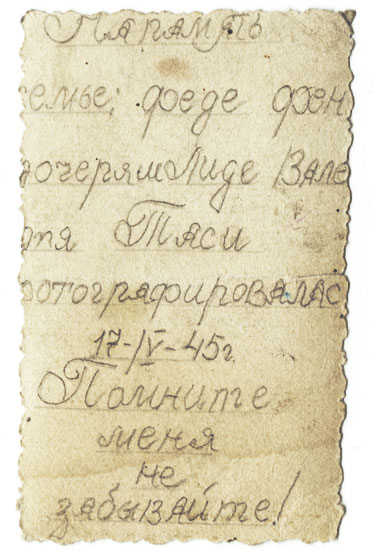 На память
семье: феде фен
дочерям Лиде Вале
отя Таси
фотографировалас
17-IV-45г.
Помните
меня
не
забывайте!